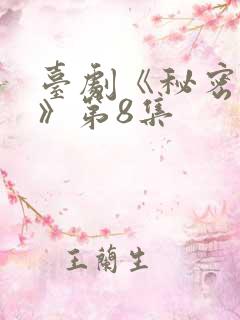 臺劇《秘密
》第8集
王蘭生